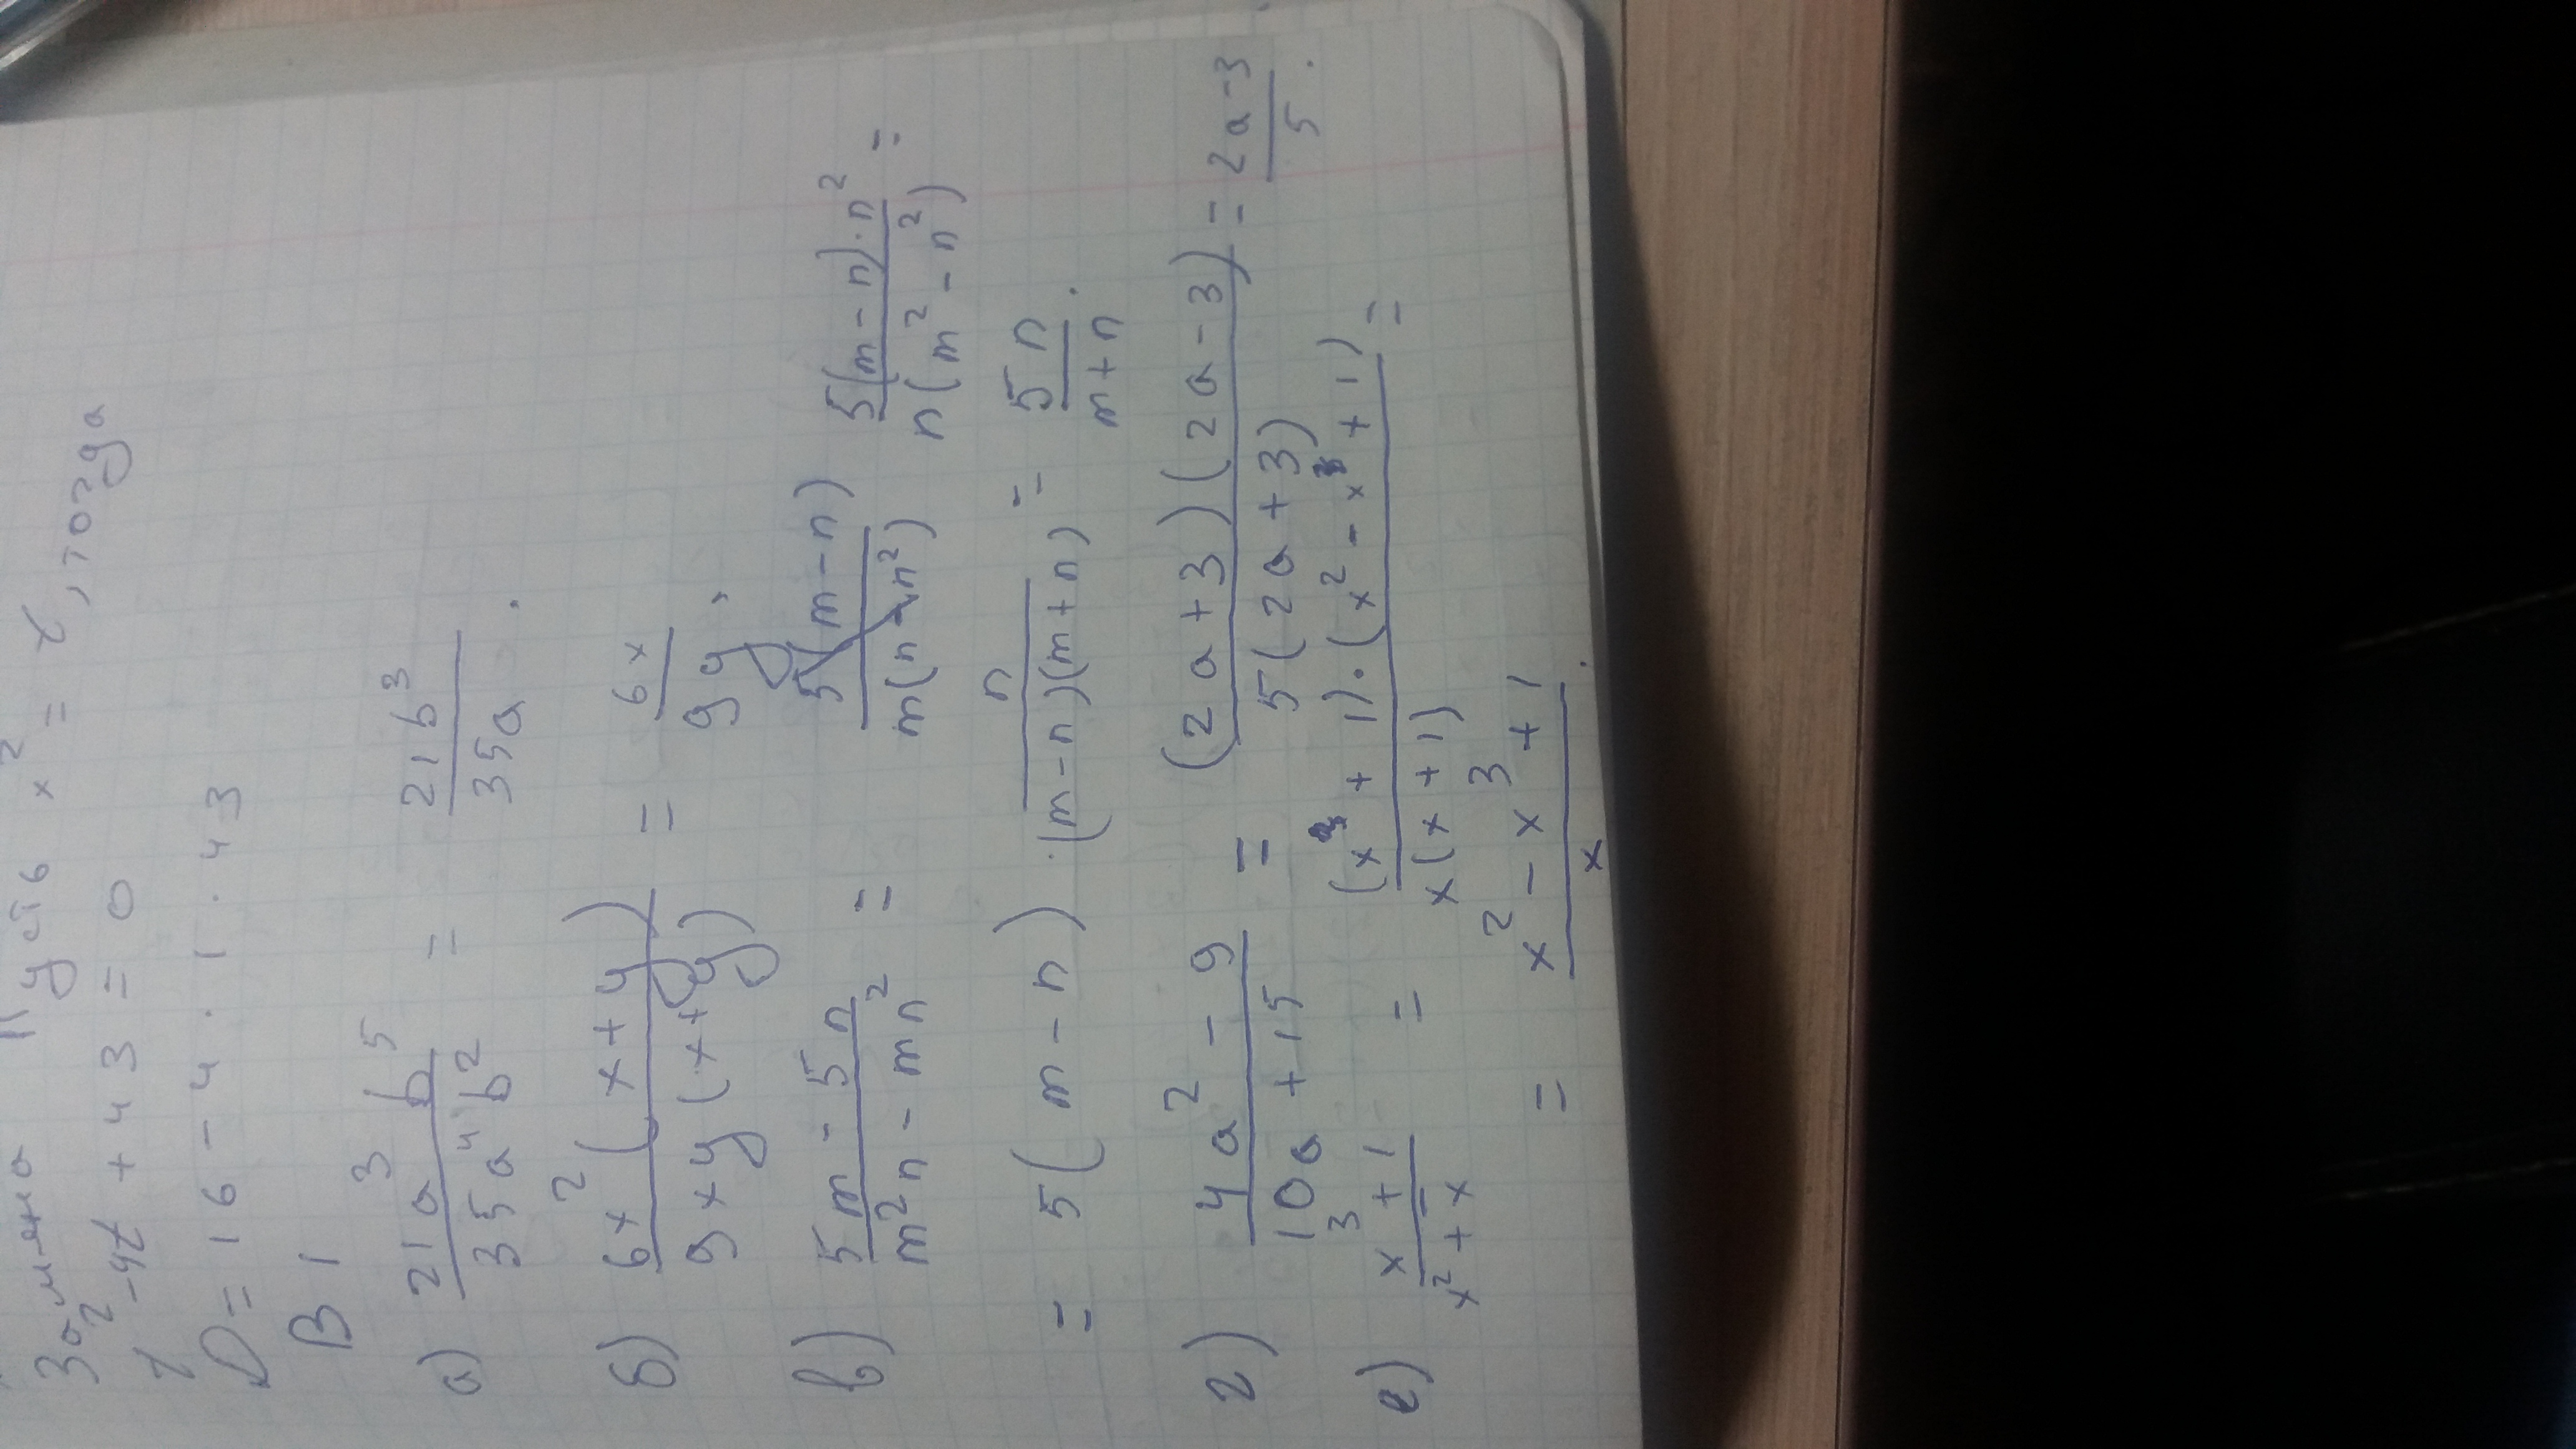 Замена Пусть x² = t, тогда
t² - 4t + 43 = 0
D = 16 - 4 · 1 · 43
B 1
а) 21a³b⁵/35a⁴b² = 21b³/35a.
б) 6x²(x+y)/9xy(x+y) = 6x/9y,
в) 5m - 5n/m²n - mn² = 5(m-n)/m(n-n²) 5(m-n)·n²/n(m²-n²) =
= 5(m-n) · n/(m-n)(m+n) = 5n/m+n.
г) 4a² - 9/10a + 15 = (2a+3)(2a-3)/5(2a+3) = 2a-3/5.
е) x³+1/x²+x = (x³+1)·(x²-x³+1)/x(x+1) =
= x² - x³ + 1/x.